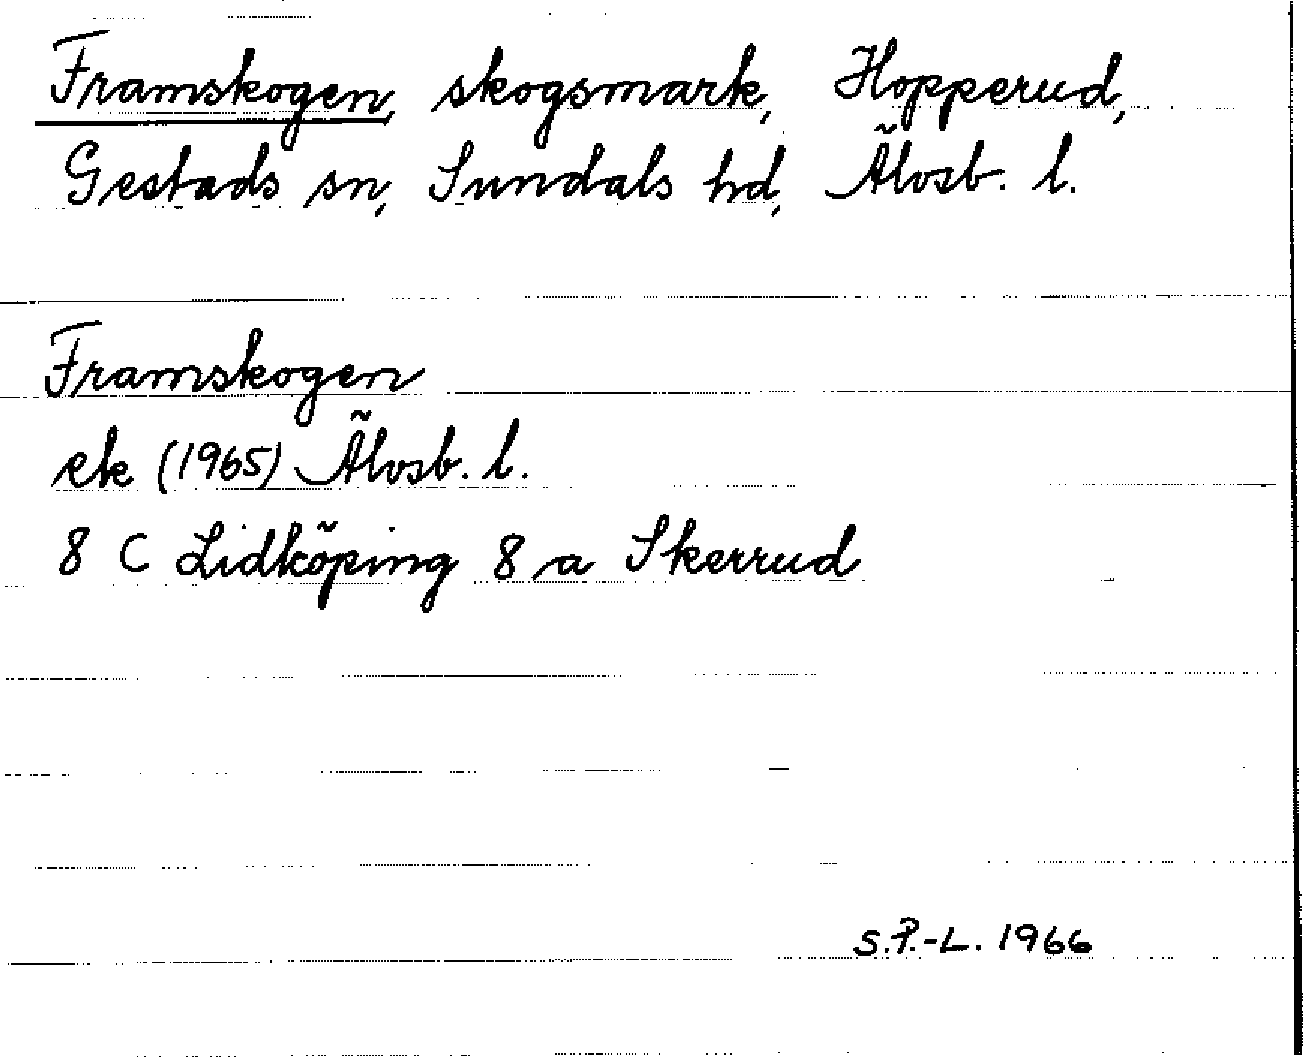 Framskogen, skogsmark, Hopperud,
Gestads sn, Sundals hd, Älvsb. l.
Framskogen
ek (1965) Älvsb. l.
8 C Lidköping 8 a Skerrud
S.P.-L. 1966